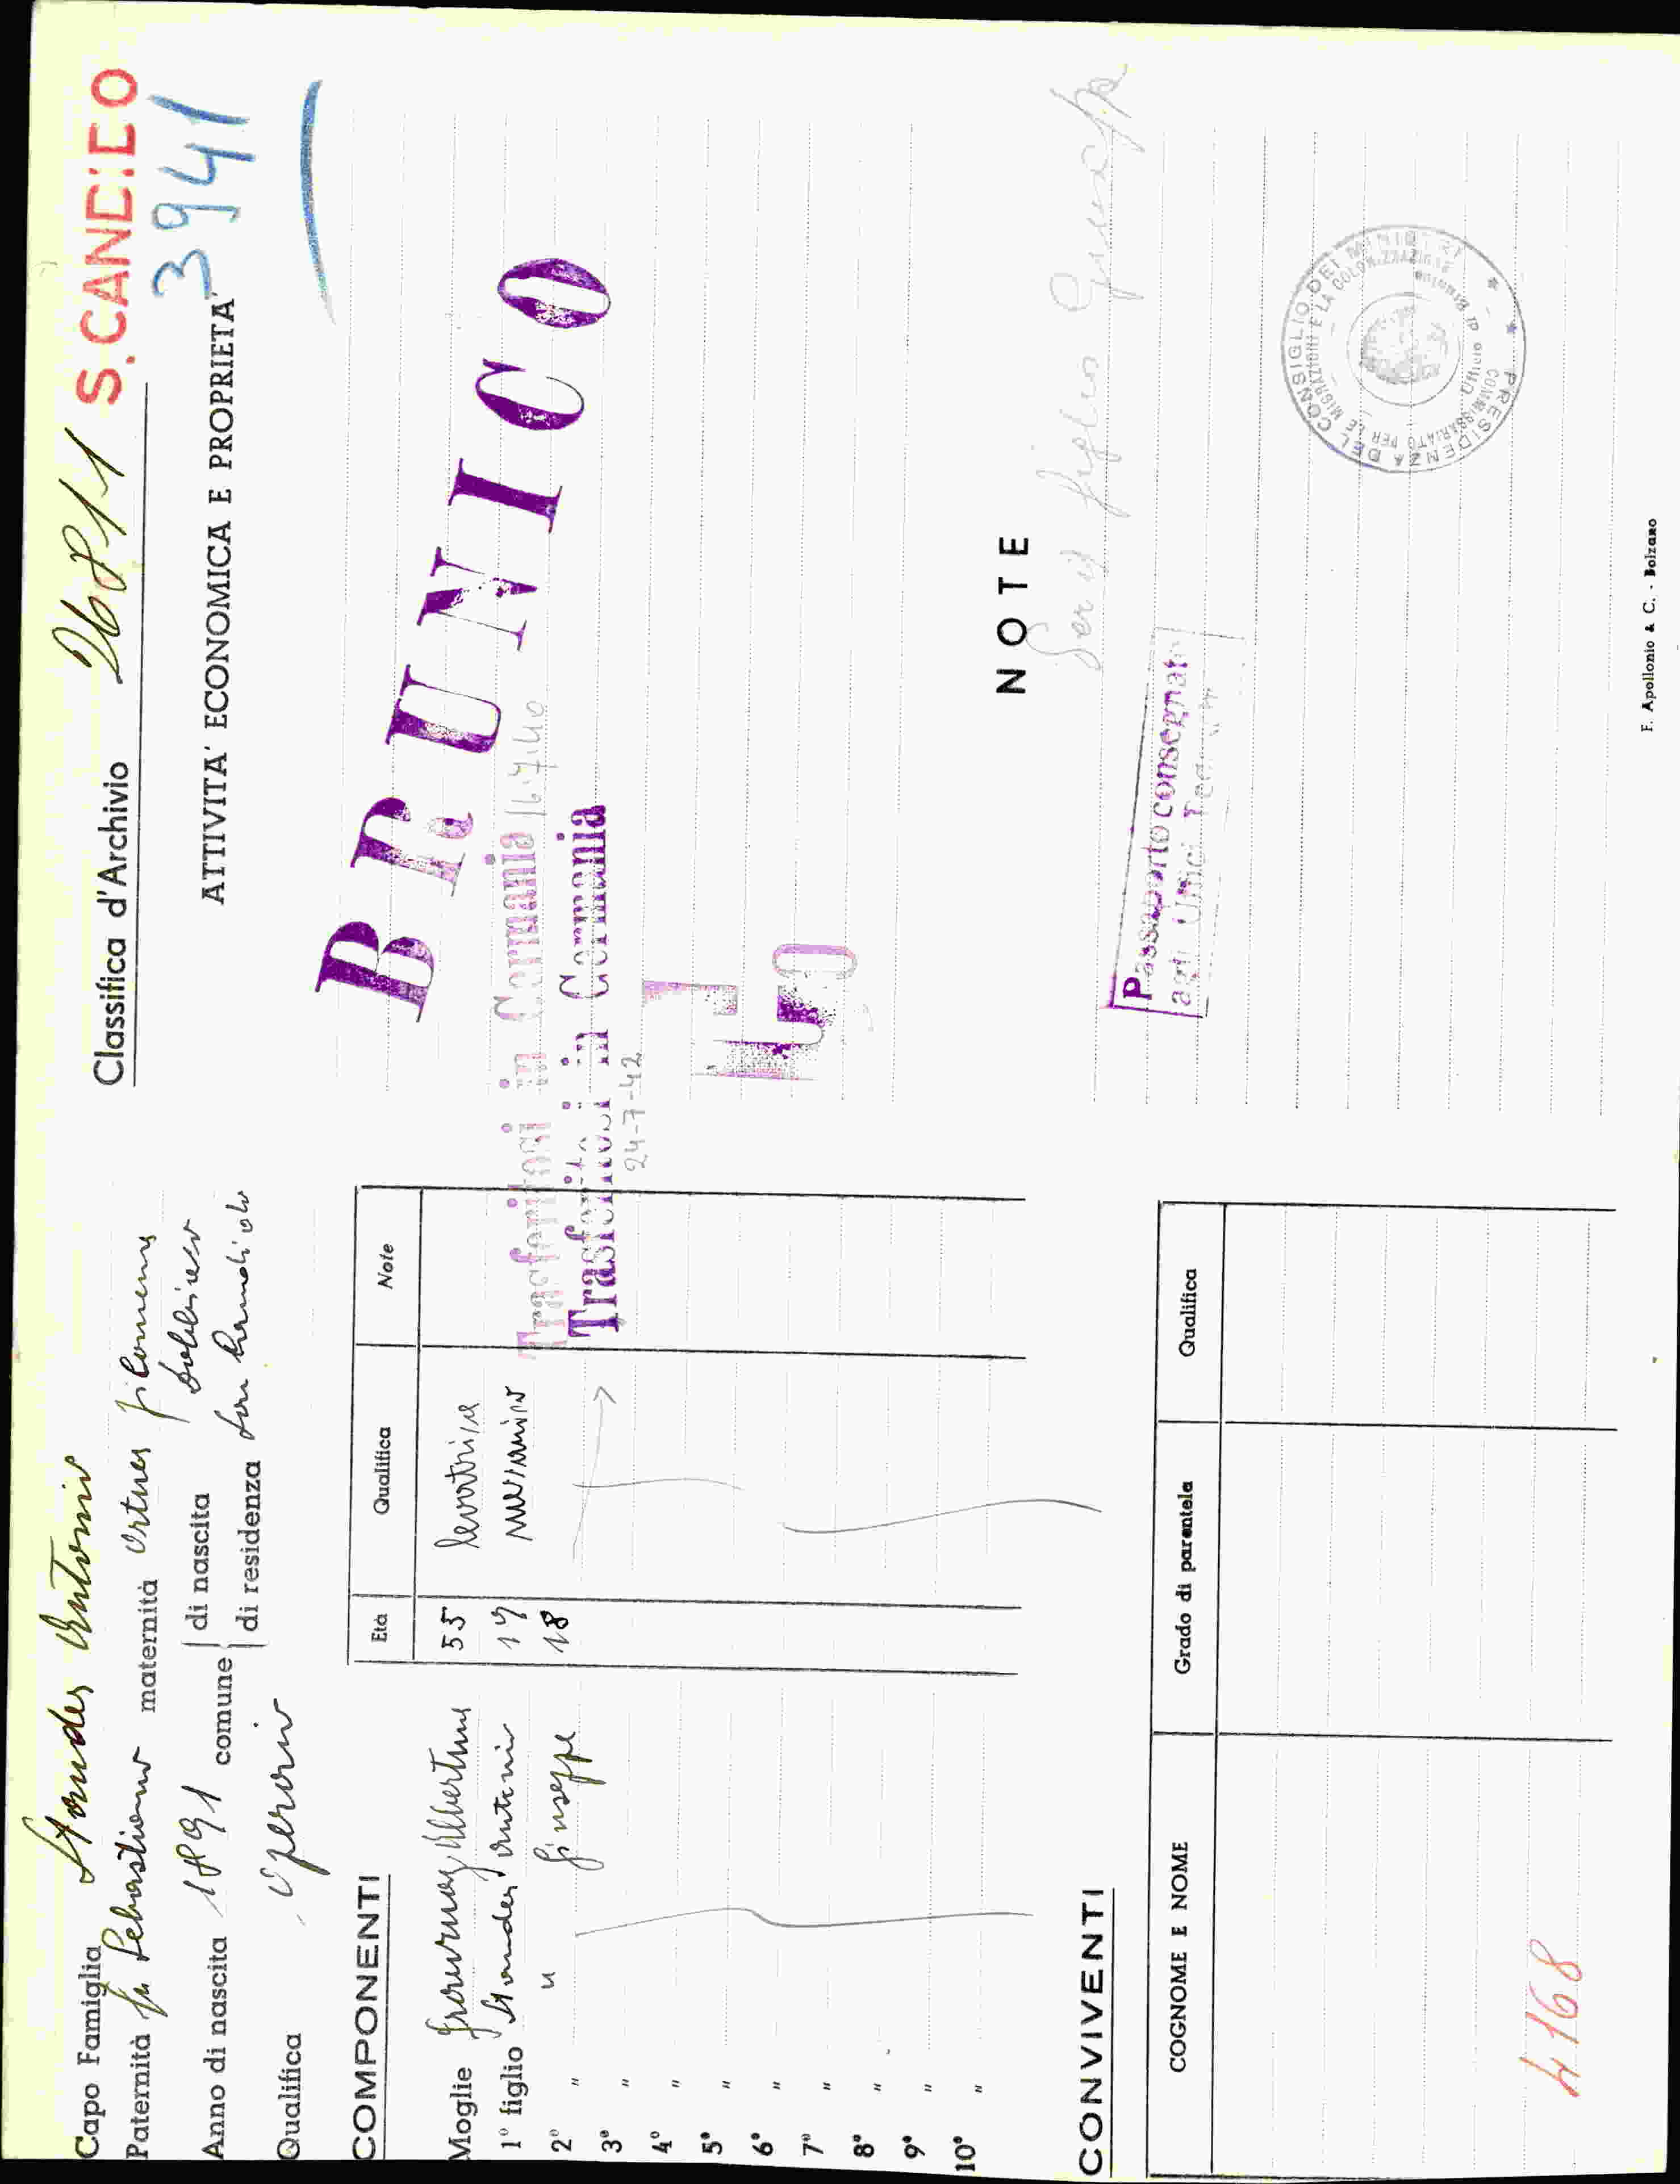 Capo Famiglia Stauder Antonio
Paternità fu Sebastiano maternità Ortner Filomena
Anno di nascita 1891 comune di nascita Dobbiaco
di residenza San Candido
Qualifica operaio
COMPONENTI
Età Qualifica Note
Moglie Albertina 55 levatrice
1º figlio Stauder Antonio 19 meccanico
2º " " Giuseppe 18
3º "
4º "
5º "
6º "
7º "
8º "
9º "
10º "
CONVIVENTI
COGNOME E NOME Grado di parentela Qualifica
4168
Classifica d'Archivio 26811 S. CANDIDO
3941
ATTIVITA' ECONOMICA E PROPRIETA'
BRUNICO
Trasferitosi in Germania 16.7.40
Trasferitosi in Germania
24-7-42
NOTE
Per il figlio Giuseppe
Passaporto consegnato
agli Uffici
PRESIDENZA DEL CONSIGLIO DEI MINISTRI
COMMISSARIATO PER LE MIGRAZIONI E LA COLONIZZAZIONE
Ufficio di Brunico
F. Apollonio & C. - Bolzano